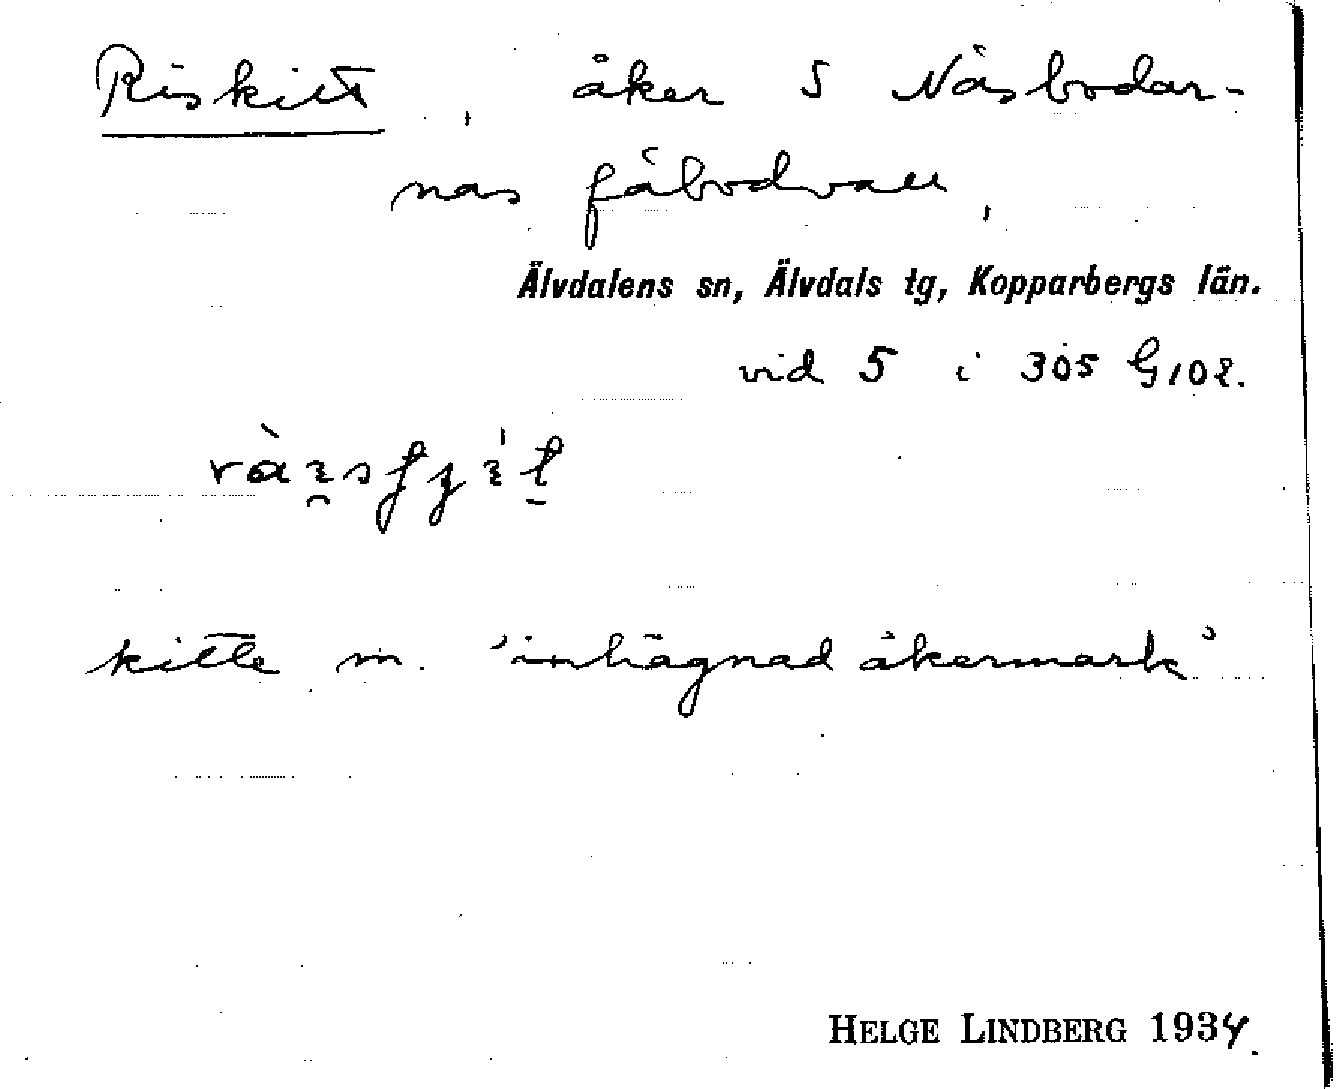 Riskitt, åker S Näsbodar-
nas fäbodvall,
Älvdalens sn, Älvdals tg, Kopparbergs län.
vid 5 i 305 G 102.
kitte m. 'inhägnad åkermark'
HELGE LINDBERG 1934